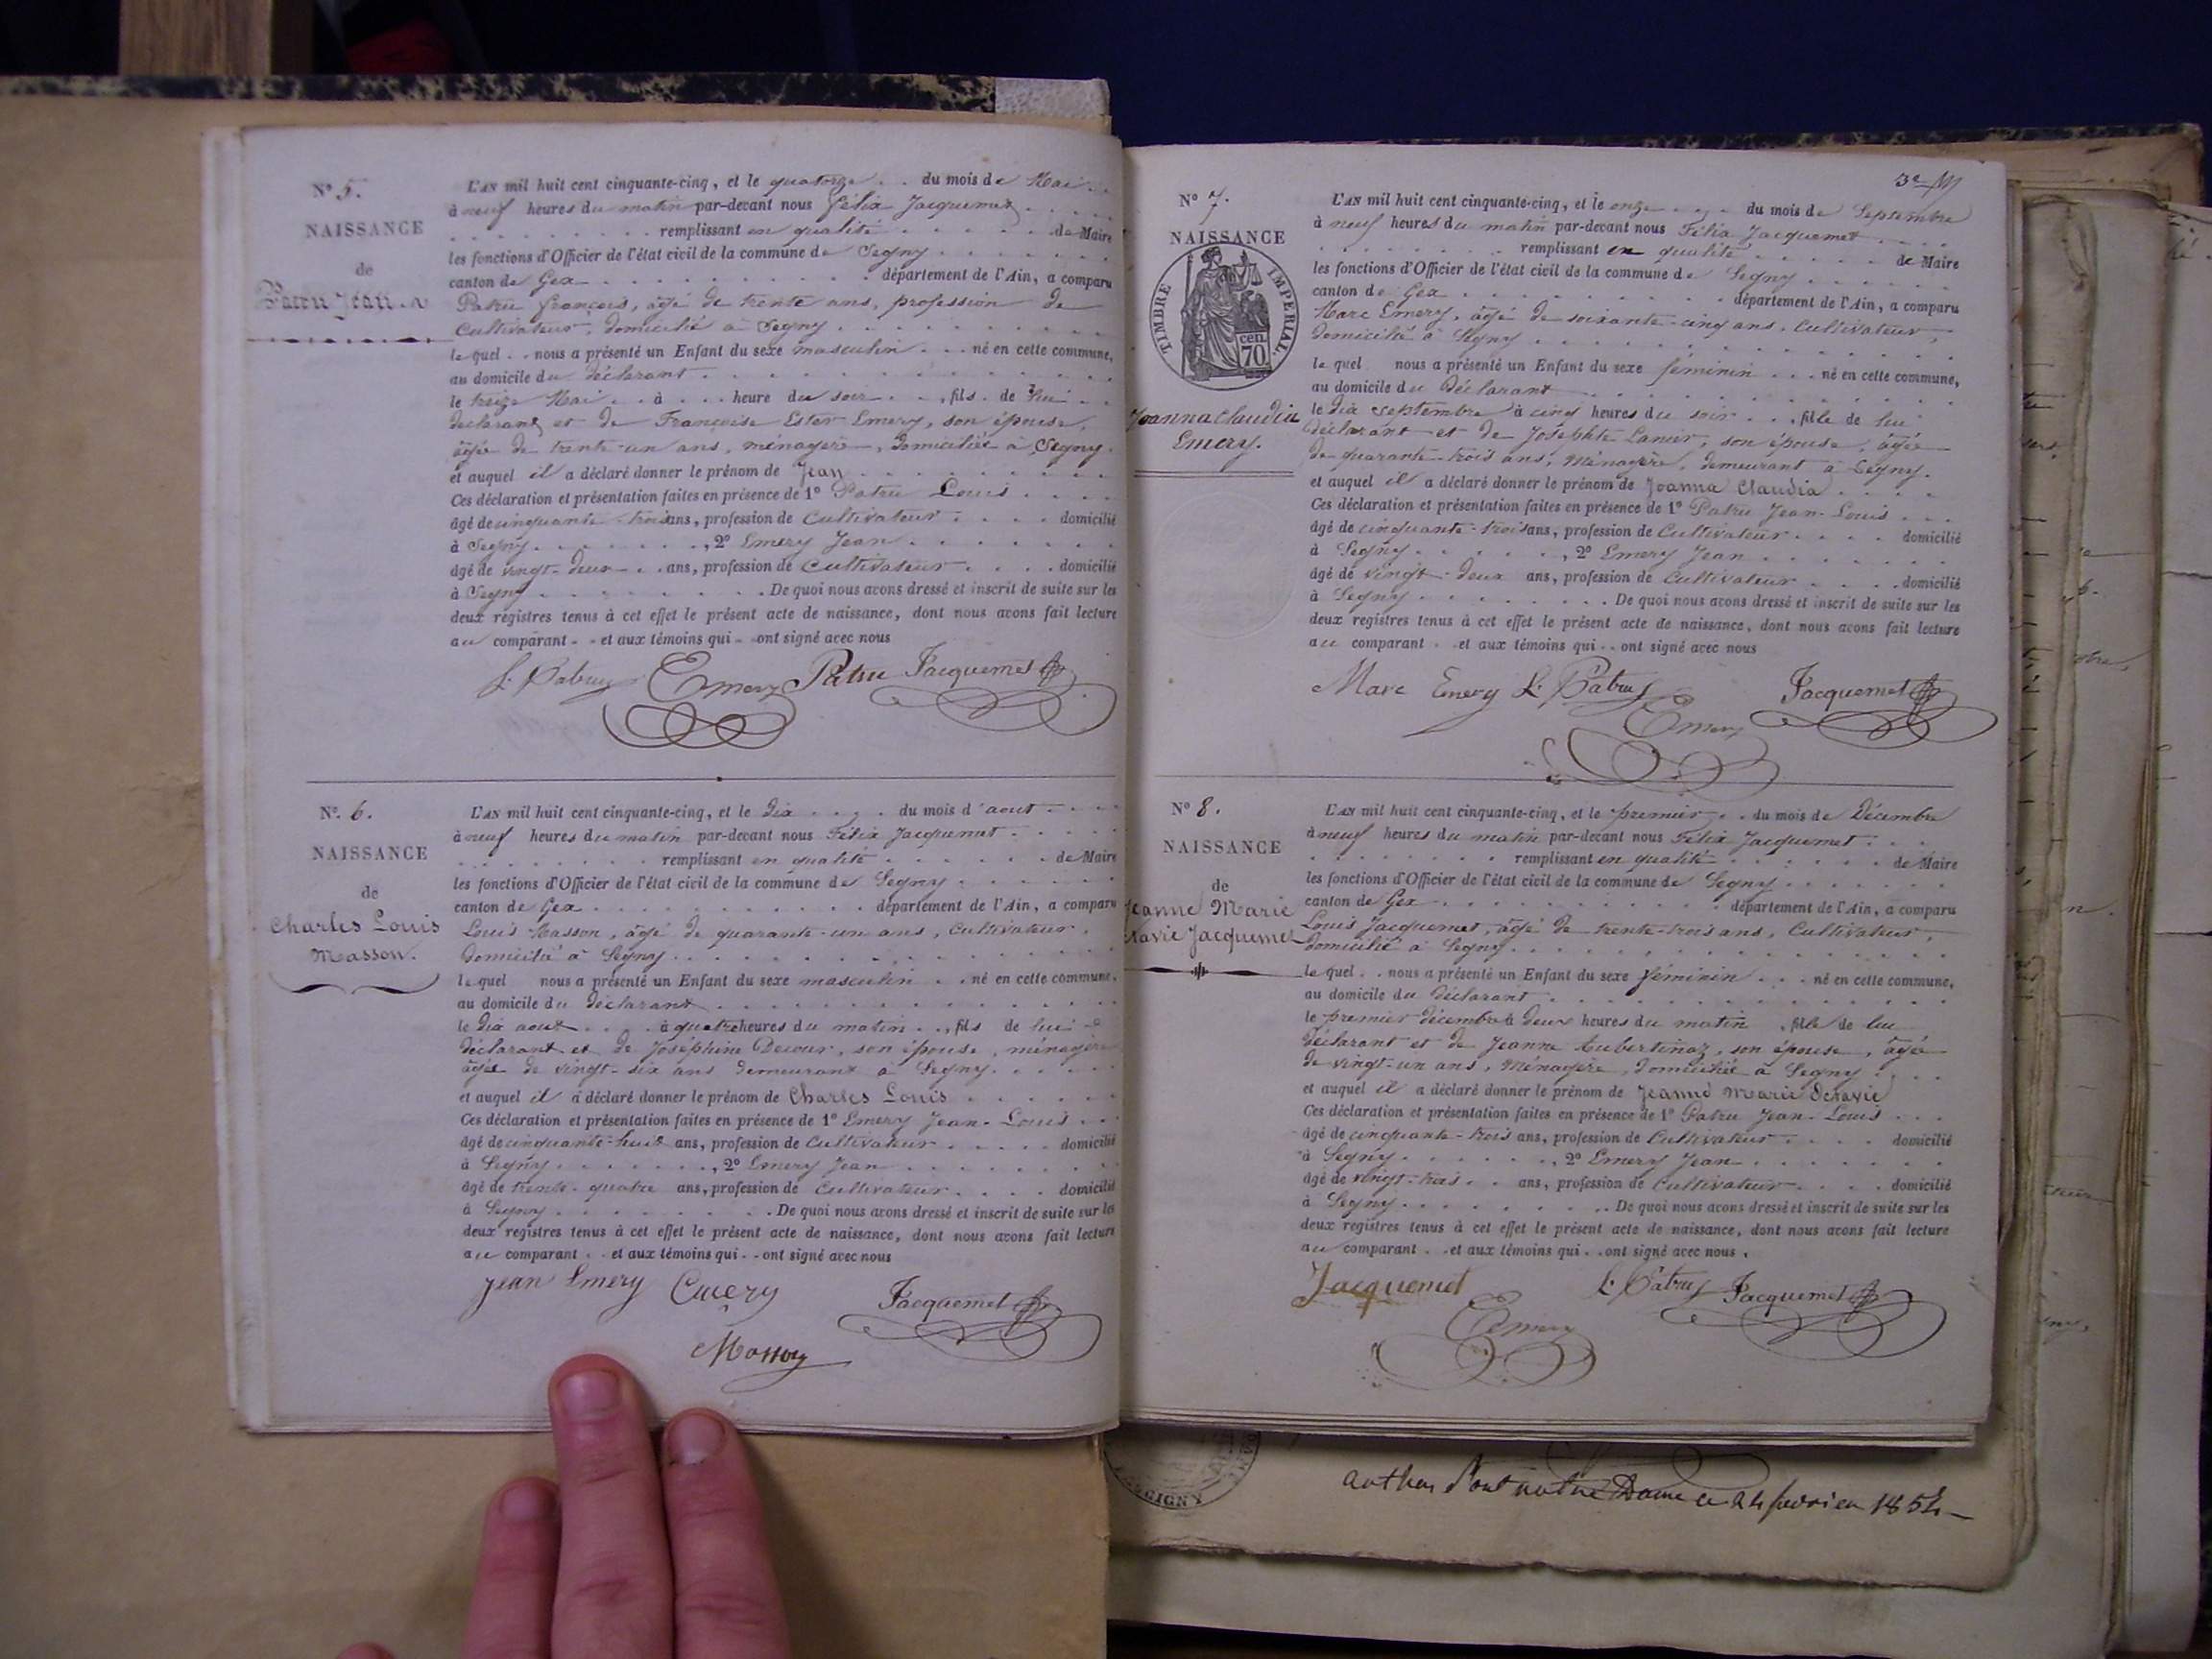 N° 5.
NAISSANCE
de
Patru Jean
L'AN mil huit cent cinquante-cinq, et le quatorze . . du mois de Mai . .
à neuf heures du matin par-devant nous Félix Jacquemet . . . .
. . . . . . . . remplissant en qualité . . . . . . de Maire
les fonctions d'Officier de l'état civil de la commune de Segny . . . . . .
canton de Gex . . . . . . . . . . département de l'Ain, a comparu
Patru françois, âgé de trente ans, profession de
Cultivateur, domicilié à Segny . . . . . . . . .
le quel . . nous a présenté un Enfant du sexe masculin . . . né en cette commune,
au domicile du déclarant . . . . . . . . . . . . .
le treize Mai . . à . . . heure du soir . . , fils . de lui . .
déclarant et de Françoise Ester Emery, son épouse,
âgée de trente-un ans, ménagère, domiciliée à Segny.
et auquel il a déclaré donner le prénom de Jean . . . . . . . .
Ces déclaration et présentation faites en présence de 1° Patru Louis . . . .
âgé de cinquante-trois ans, profession de Cultivateur . . . . domicilié
à Segny . . . . . . . , 2° Emery Jean . . . . . . .
âgé de vingt-deux . . ans, profession de Cultivateur . . . . domicilié
à Segny . . . . . . . . De quoi nous avons dressé et inscrit de suite sur les
deux registres tenus à cet effet le présent acte de naissance, dont nous avons fait lecture
au comparant - - et aux témoins qui - - ont signé avec nous
L. Patru Emery Patru Jacquemet
N° 6.
NAISSANCE
de
Charles Louis
Masson.
L'AN mil huit cent cinquante-cinq, et le dix . . . . du mois d'aout . . .
à neuf heures du matin par-devant nous Félix Jacquemet . . . .
. . . . . . . . remplissant en qualité . . . . . . de Maire
les fonctions d'Officier de l'état civil de la commune de Segny . . . . . .
canton de Gex . . . . . . . . . . département de l'Ain, a comparu
Louis Masson, âgé de quarante-un ans, Cultivateur,
domicilié à Segny . . . . . . . . . . . . . .
le quel nous a présenté un Enfant du sexe masculin . . né en cette commune,
au domicile du déclarant . . . . . . . . . . . . .
le dix aout . . . . à quatre heures du matin . . , fils de lui
déclarant et de Joséphine Decour, son épouse, ménagère
âgée de vingt-six ans demeurant à Segny . . . . .
et auquel il a déclaré donner le prénom de Charles Louis . . . . . .
Ces déclaration et présentation faites en présence de 1° Emery Jean-Louis . .
âgé de cinquante-huit ans, profession de Cultivateur . . . . . domicilié
à Segny . . . . . . . , 2° Emery Jean . . . . . . .
âgé de trente-quatre ans, profession de Cultivateur . . . . domicilié
à Segny . . . . . . . . De quoi nous avons dressé et inscrit de suite sur les
deux registres tenus à cet effet le présent acte de naissance, dont nous avons fait lecture
au comparant . . et aux témoins qui . . ont signé avec nous
Jean Emery Emery Jacquemet
Masson
3e
N° 7.
NAISSANCE
TIMBRE IMPERIAL.
cen.
70
Joanna Claudia
Emery.
L'AN mil huit cent cinquante-cinq, et le onze . . . . du mois de Septembre
à neuf heures du matin par-devant nous Félix Jacquemet . . . .
. . . . . . . . remplissant en qualité . . . . . . de Maire
les fonctions d'Officier de l'état civil de la commune de Segny . . . . . .
canton de Gex . . . . . . . . . . département de l'Ain, a comparu
Marc Emery, âgé de soixante-cinq ans, Cultivateur,
domicilié à Segny . . . . . . . . . . . . . .
le quel nous a présenté un Enfant du sexe féminin . . . né en cette commune,
au domicile du déclarant . . . . . . . . . . . . .
le dix septembre à cinq heures du soir . . , fille de lui
déclarant et de Josephte Lanier, son épouse, âgée
de quarante-trois ans, Ménagère, demeurant à Segny.
et auquel il a déclaré donner le prénom de Joanna Claudia . . . .
Ces déclaration et présentation faites en présence de 1° Patru Jean-Louis . . .
âgé de cinquante-trois ans, profession de Cultivateur . . . . domicilié
à Segny . . . . . . . , 2° Emery Jean . . . . . . .
âgé de vingt-deux ans, profession de Cultivateur . . . . domicilié
à Segny . . . . . . . . De quoi nous avons dressé et inscrit de suite sur les
deux registres tenus à cet effet le présent acte de naissance, dont nous avons fait lecture
au comparant . . et aux témoins qui . . ont signé avec nous
Marc Emery L. Patru Jacquemet
Emery
N° 8.
NAISSANCE
de
Jeanne Marie
Octavie Jacquemet
L'AN mil huit cent cinquante-cinq, et le premier . . du mois de Décembre
à neuf heures du matin par-devant nous Félix Jacquemet . . .
. . . . . . . . remplissant en qualité . . . . . . de Maire
les fonctions d'Officier de l'état civil de la commune de Segny . . . . . .
canton de Gex . . . . . . . . . . département de l'Ain, a comparu
Louis Jacquemet, âgé de trente-trois ans, Cultivateur,
domicilié à Segny . . . . . . . . . . . . . .
le quel . . nous a présenté un Enfant du sexe féminin . . . né en cette commune,
au domicile du déclarant . . . . . . . . . . . . .
le premier décembre à deux heures du matin , fille de lui
déclarant et de Jeanne Aubertinaz, son épouse, âgée
de vingt-un ans, Ménagère, domiciliée à Segny . . . .
et auquel il a déclaré donner le prénom de Jeanne Marie Octavie
Ces déclaration et présentation faites en présence de 1° Patru Jean-Louis . . .
âgé de cinquante-trois ans, profession de Cultivateur . . . . domicilié
à Segny . . . . . . . , 2° Emery Jean . . . . . . .
âgé de vingt-trois . . ans, profession de Cultivateur . . . . domicilié
à Segny . . . . . . . . De quoi nous avons dressé et inscrit de suite sur les
deux registres tenus à cet effet le présent acte de naissance, dont nous avons fait lecture
au comparant . . et aux témoins qui . . ont signé avec nous .
Jacquemet L. Patru Jacquemet
Emery
Pont notre Dame 24 fevrier 1854